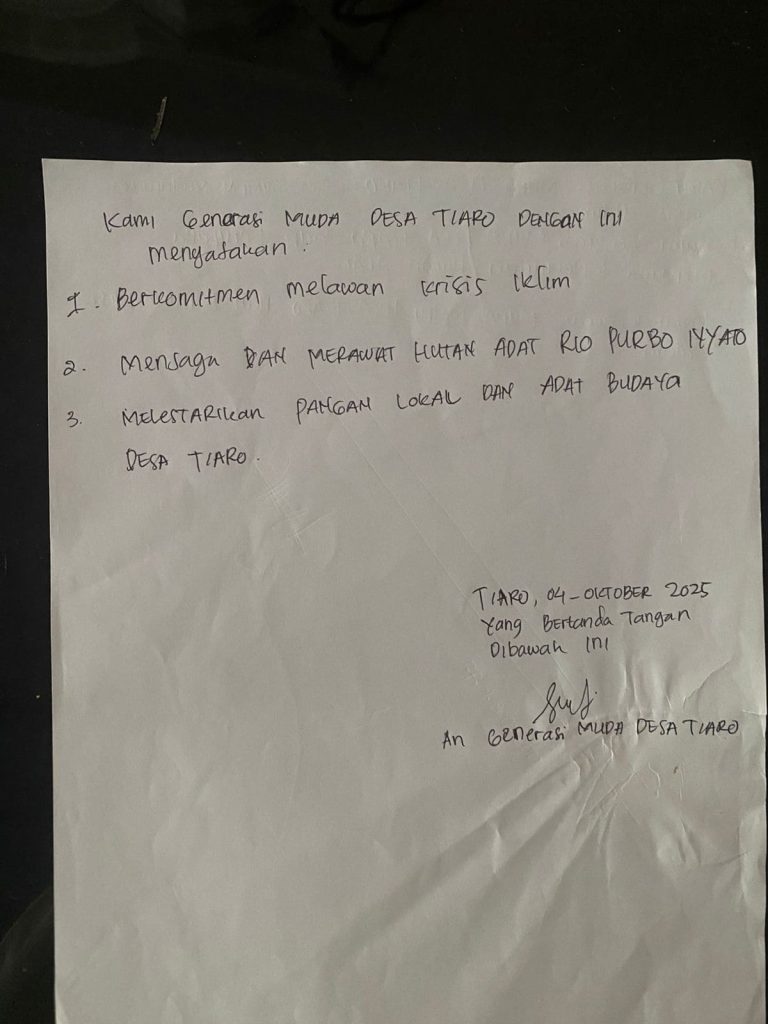 Kami Generasi MUDA DESA TIARO DENGAN INI
mengatakan :
1. Berkomitmen melawan krisis iklim
2. Mensaga DAN MERAWAT HUTAN ADAT RIO PURBO
3. MELESTARIkan PANGAN LOKAL DAN ADAT BUDAYA
DESA TIARO.
TIARO, 04-OKTOBER 2025
Yang Bertanda Tangan
Dibawah INI
An Generasi MUDA DESA TIARO